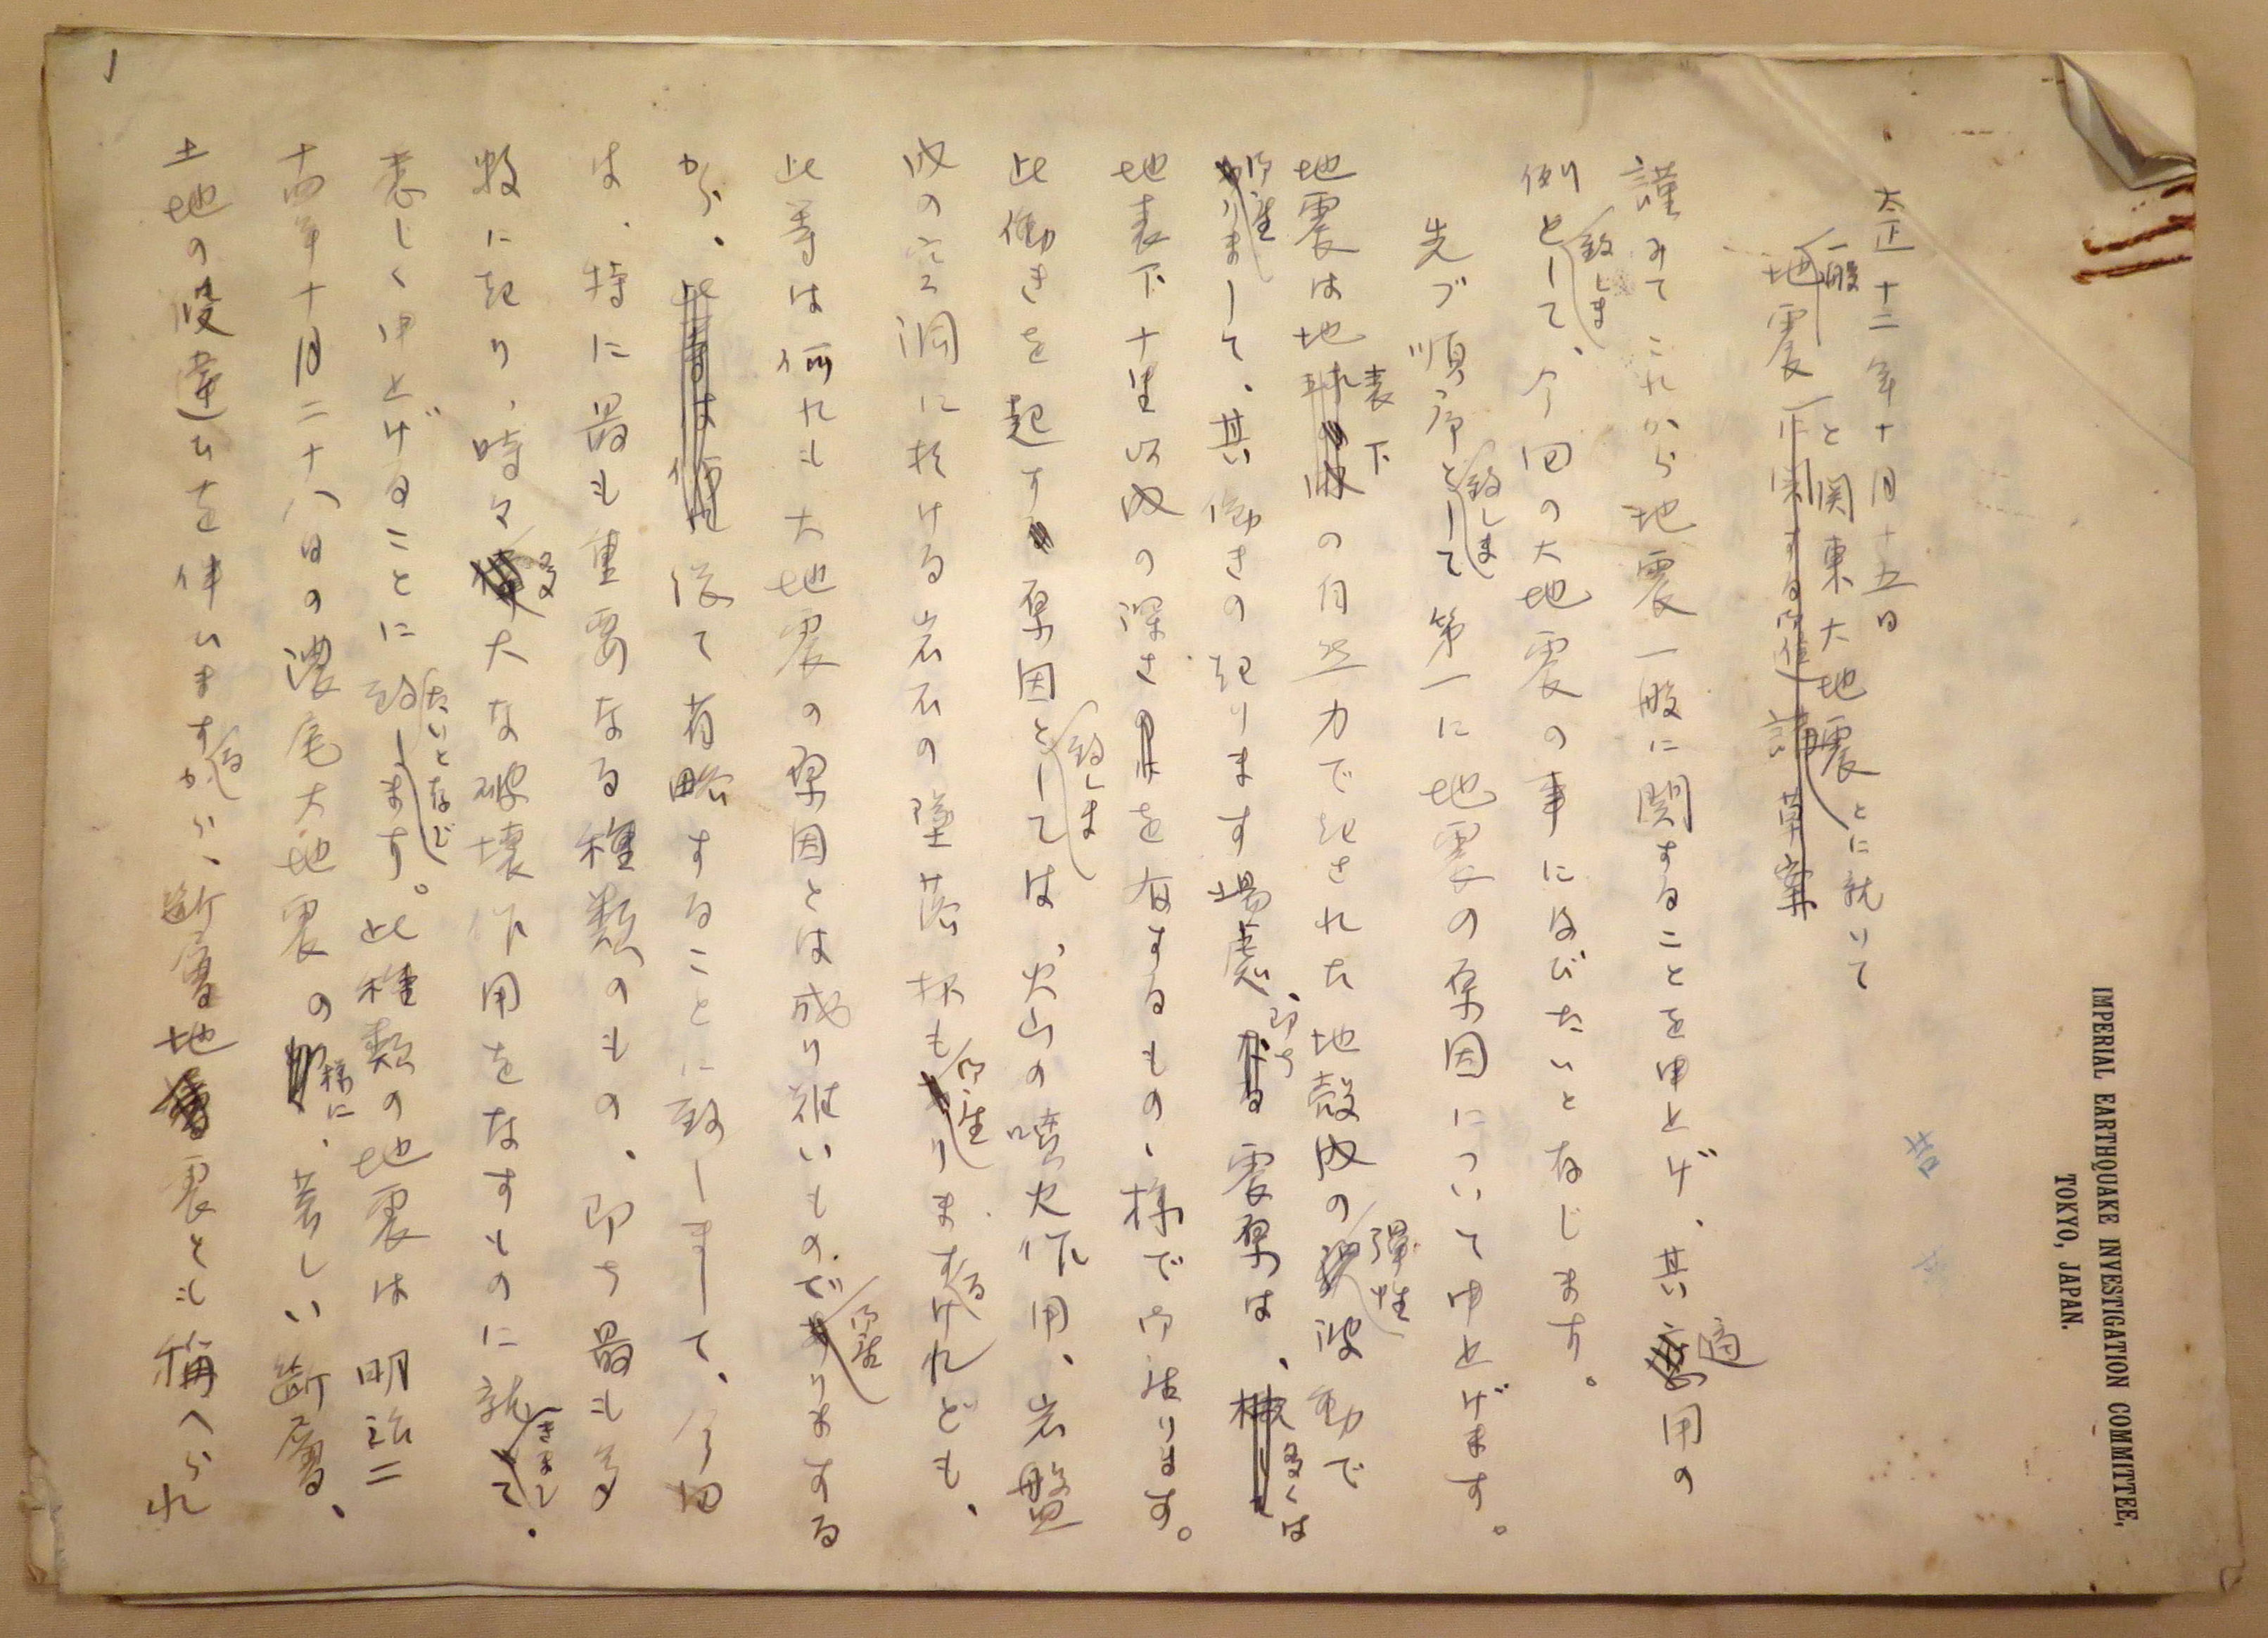 大正十二年十月十五日
一般と関東大地震とに就いて
地震に関する御進講草案
謹みてこれから地震一般に関することを申上げ、其適用の
例と致しまして、今回の大地震の事に及びたいと存じます。
先づ順序と致しまして第一に地震の原因について申上げます。
地震は地表下の自然力で起された地殻内の弾性波動で
御座りまして、其働きの起ります場處、即ち震原は、多くは
地表下十里以内の深さを有するものゝ様で御座ります。
此働きを起す原因と致しましては、火山の噴火作用、岩盤
内の空洞に於ける岩石の墜落抔も御座りまするけれども、
此等は何れも大地震の原因とは成り難いもので御座りまする
から、從て省略することに致しまして、今回
は、特に最も重要なる種類のもの、即ち最も多
数に起り、時々多大な破壊作用をなすものに就きまして、
悉しく申上げることに致したいと存じます。此種類の地震は明治二
十四年十月二十八日の濃尾大地震の様に、著しい断層、
土地の段違ひを伴ひまするから、断層地震とも稱へられ
IMPERIAL EARTHQUAKE INVESTIGATION COMMITTEE,
TOKYO, JAPAN.
1